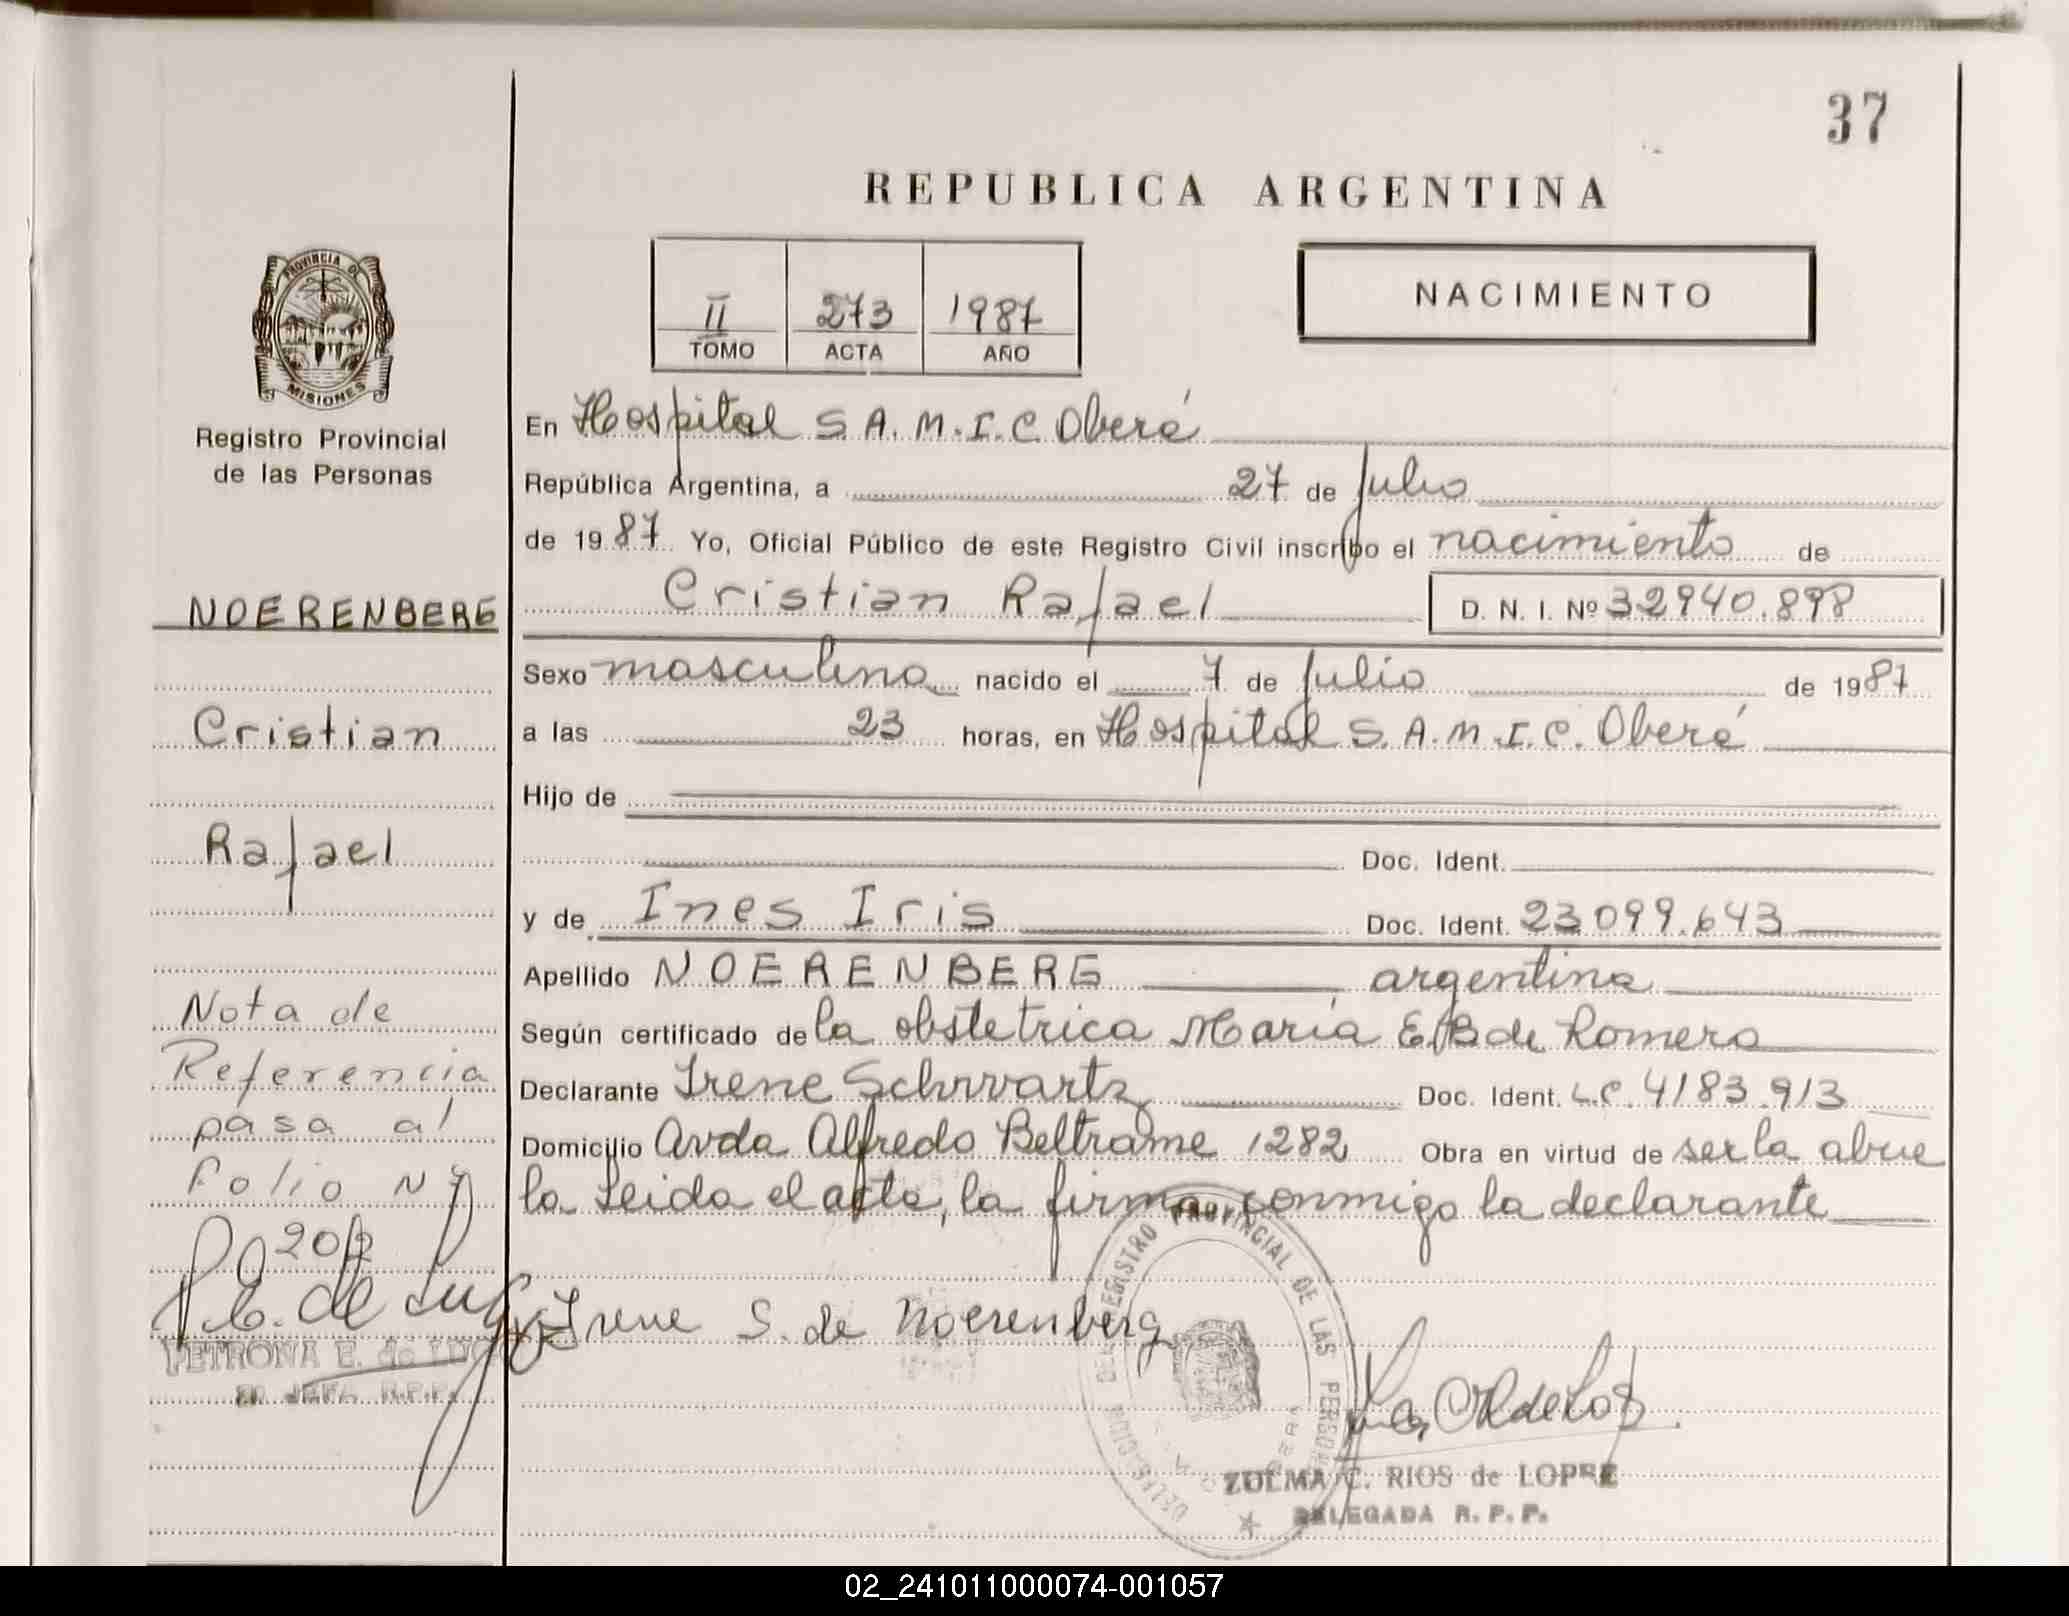 37
REPUBLICA ARGENTINA
PROVINCIA DE
MISIONES
Registro Provincial
de las Personas
II 273 1987
TOMO ACTA AÑO
NACIMIENTO
En Hospital S.A.M.I.C. Oberá
República Argentina, a 27 de Julio
de 1987 Yo, Oficial Público de este Registro Civil inscribo el nacimiento de
Cristian Rafael D. N. I. Nº 32940.898
Sexo masculino nacido el 7 de Julio de 1987
a las 23 horas, en Hospital S.A.M.I.C. Oberá
Hijo de
Doc. Ident.
y de Ines Iris Doc. Ident. 23099.643
Apellido NOERENBERG argentina
Según certificado de la obstetrica María E.B de Romero
Declarante Irene Schwartz Doc. Ident. L.C. 4183.913
Domicilio Avda Alfredo Beltrame 1282 Obra en virtud de ser la abue
la Leida el acta, la firma conmigo la declarante
Irene S. de Noerenberg
REGISTRO PROVINCIAL DE LAS PERSONAS
ZULMA C. RIOS de LOPEZ
DELEGADA R. P. P.
NOERENBERG
Cristian
Rafael
Nota de
Referencia
pasa al
Folio Nº
202
P.E. de Lugo
PETRONA E. de LUGO
JEFA R.P.P.
02_241011000074-001057